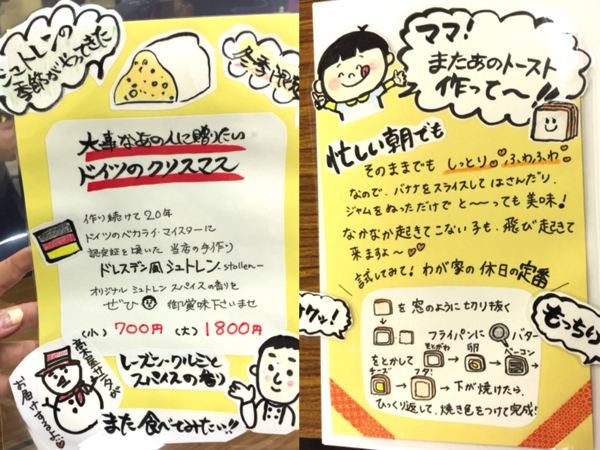 シュトレンの
季節がやってきた
冬季限定
大事なあの人に贈りたい
ドイツのクリスマス
作り続けて20年
ドイツのベカライ・マイスターに
認定証を頂いた 当店の手作り
ドレスデン風シュトレン -stollen-
オリジナル シュトレン スパイスの香りを
ぜひ 御賞味下さいませ
(小) 700円 (大) 1800円
お届けするよ
レーズン・クルミと
スパイスの香り
また食べてみたい!!
ママ!
またあのトースト
作って〜!!
忙しい朝でも
そのままでも しっとり ふわふわ
なので、バナナをスライスして はさんだり、
ジャムをぬっただけで と〜っても 美味!
なかなか起きてこない子も、飛び起きて
来ますよ〜
試してみて! わが家の 休日の定番
もっちり
を窓のように切り抜く
フライパンに バター
をとかして
もとがわ
卵
ベーコン
チーズ
フタ!
下が焼けたら、
ひっくり返して、焼き色をつけて完成!